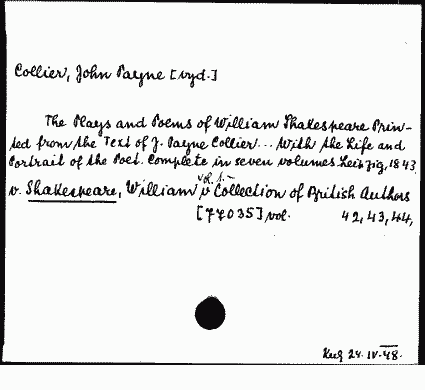 Collier, John Payne [vyd.]
The Plays and Poems of William Shakespeare Prin-
ted from the Text of J. Payne Collier... With the Life and
Portrait of the Poet. Complete in seven volumes. Leipzig, 1843.
vol. 1.-
v. Shakespeare, William v Collection of British Authors
[77035] vol. 42, 43, 44,
24. IV. 48.